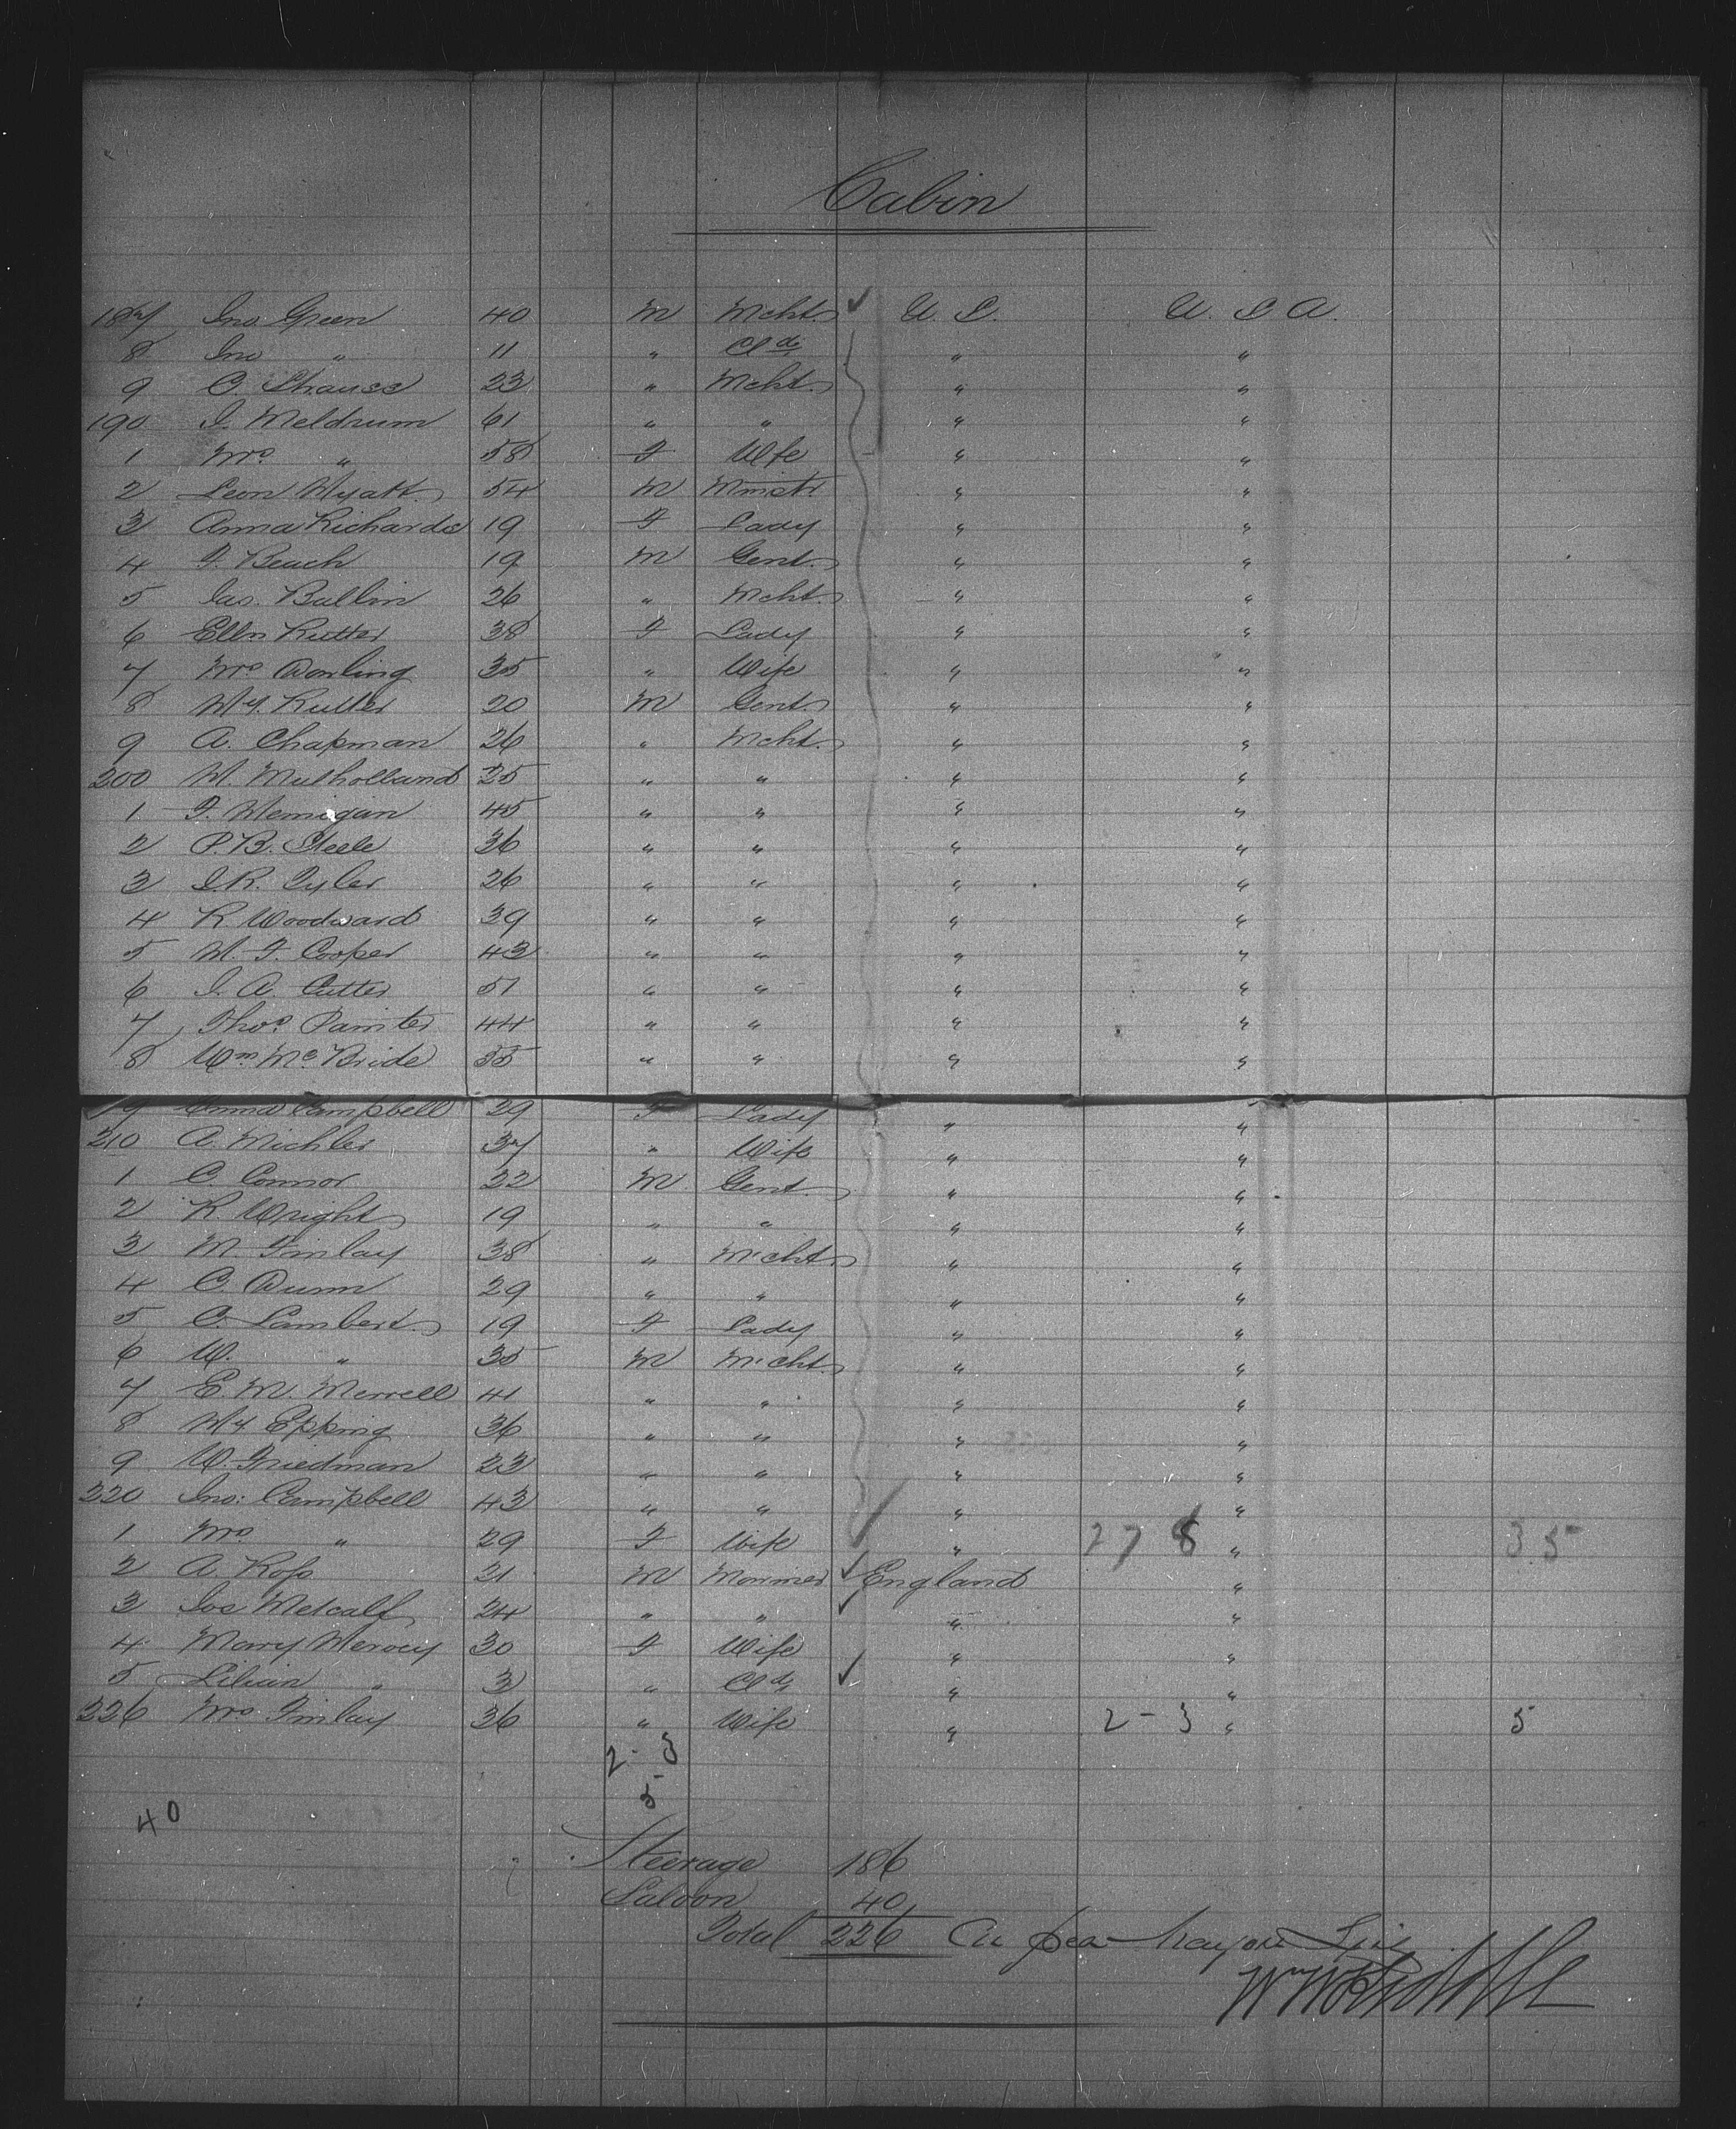 Cabin
187 Jno Green 40 M Mcht. U. S. U. S. A.
8 Jno " 11 " Cld " "
9 C. Strauss 23 " Mcht. " "
190 J. Meldrum 61 " " " "
1 Mrs " 58 F Wife " "
2 Leon Hyatt 54 M " "
3 Anna Richards 19 F Lady " "
4 F. Beach 19 M Gent. " "
5 Jas. Ballin 26 " Mcht. " "
6 Ellen Rutter 38 F Lady " "
7 Mrs Dowling 35 " Wife " "
8 Hy. Rutter 20 M Gent " "
9 A. Chapman 26 " Mcht. " "
200 H. Mulholland 25 " " " "
1 F. 45 " " " "
2 P. B. Steele 36 " " " "
3 J. R. Tyler 26 " " " "
4 R. Woodward 39 " " " "
5 H. F. Cooper 43 " " " "
6 J. A. Cutter 51 " " " "
7 Thos. Painter 44 " " " "
8 Wm. McBride 35 " " " "
9 Emma Campbell 29 F Lady " "
210 A. Michler 37 " Wife " "
1 C. Connor 22 M Gent. " "
2 R. Wright 19 " " " "
3 M Finlay 38 " Mcht " "
4 C. Dunn 29 " " " "
5 C. Lambert. 19 F Lady " "
6 W. " 35 M Mcht. " "
7 E. M. Merrell 41 " " " "
8 Hy Epping 36 " " " "
9 W. Friedman 23 " " " "
220 Jno: Campbell 43 " " " "
1 Mrs " 29 F Wife " 27 8 " 35
2 A. Ross 21 M England "
3 Jos Metcalf 24 " " " "
4 Mary Mervey 30 F Wife " "
5 Lilian " 3 " Cld " "
226 Mrs Finlay 36 " Wife " 2-3 " 5
2-3
5
40
Steerage 186
Saloon 40
Total 226